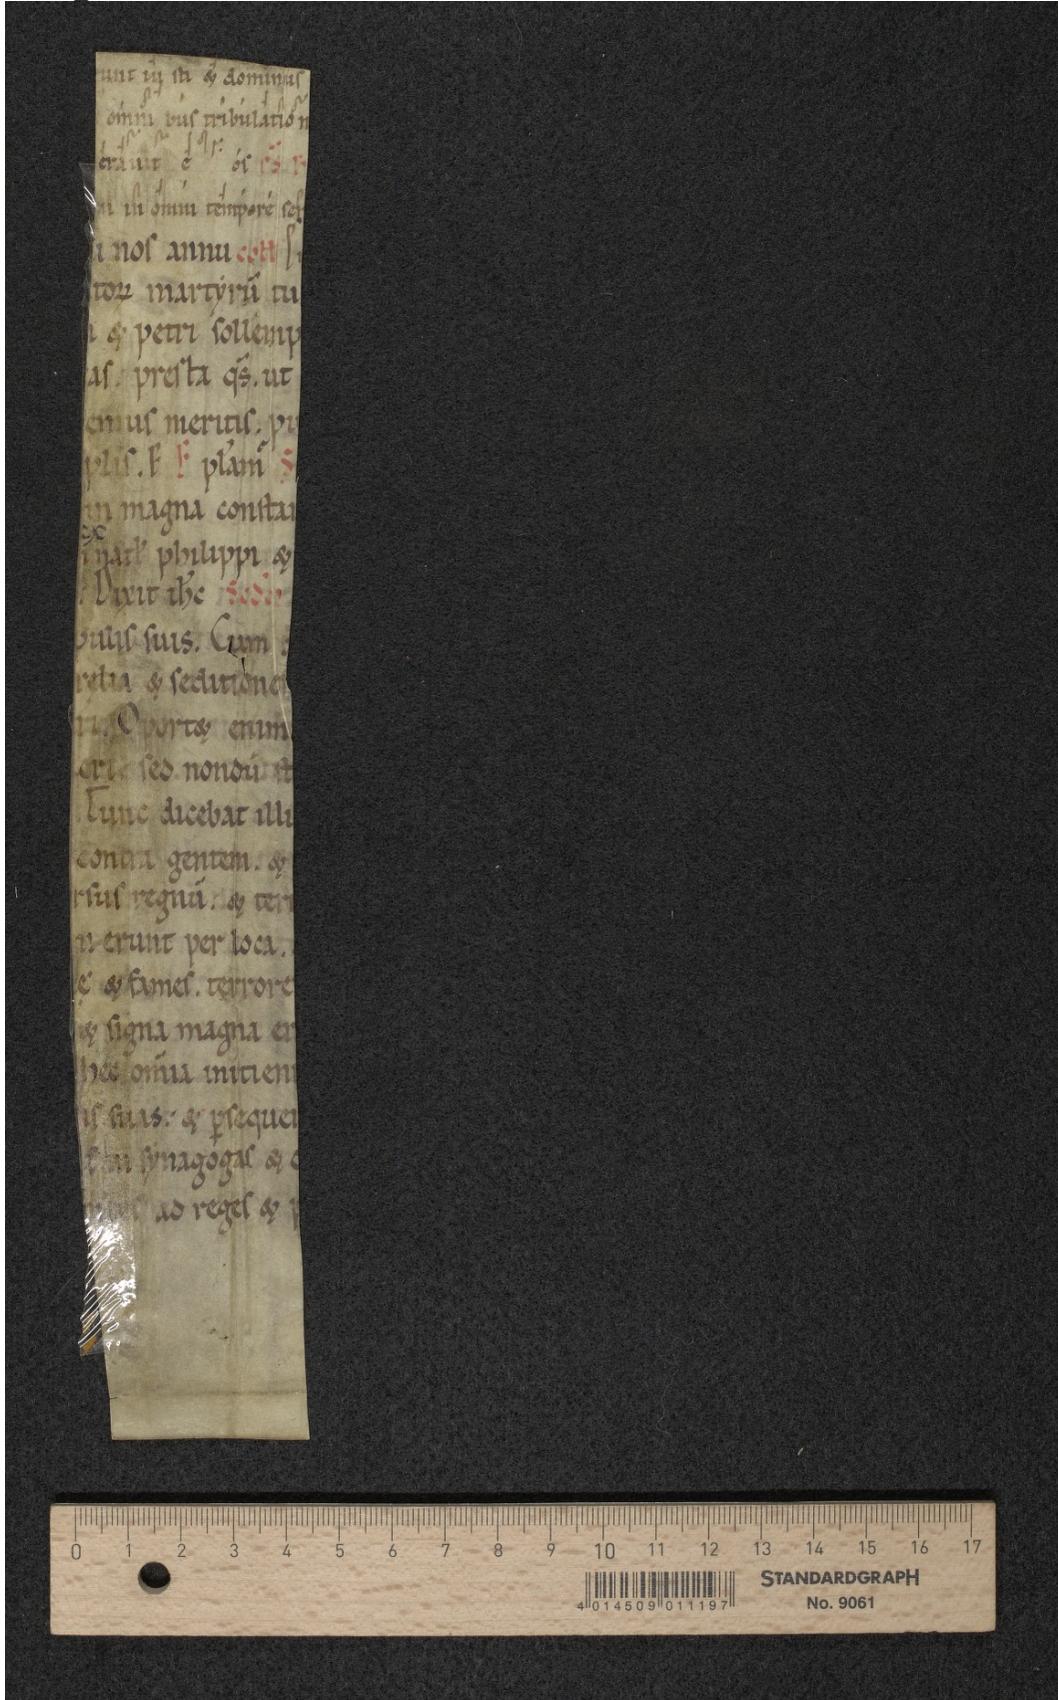 unt iu sti & dominus
omni bus tribulatio n
erauit e os
in omni tempore
nos annu coll
torꝝ martyrū tu
& petri sollemp
as. presta qs̄. ut
emus meritis. pi
plis. P̄ F plam̄ S
in magna constan
nat̄ philippi &
Dixit ihc Secd̄
pulis suis. Cum
relia & seditione
ri. Oport& enim
eri sed nondū st
Tunc dicebat illi
contra gentem. &
rsus regnū. & terr
n erunt per loca.
e & fames. terrore
& signa magna er
hec om̄ia initient
as suas. & p̱sequen
in synagogas & c
ad reges & p
0 1 2 3 4 5 6 7 8 9 10 11 12 13 14 15 16 17
STANDARDGRAPH
4 014509 011197
No. 9061